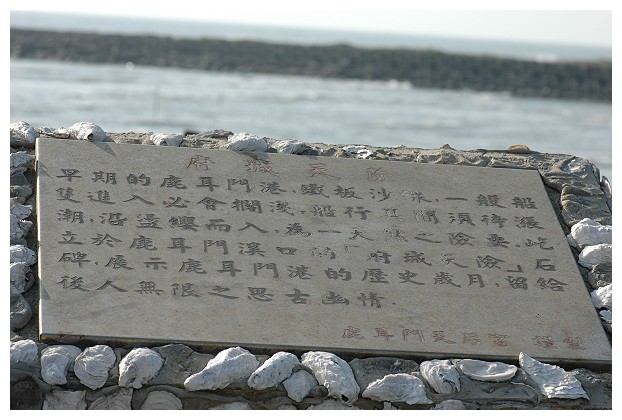 府城天險
早期的鹿耳門港，鐵板沙線，一般船
隻進入必會擱淺，船行其間須待漲
潮，沿盪纓而入，為一天然之險要，屹
立於鹿耳門溪口的「府城天險」石
碑，展示鹿耳門港的歷史歲月，留給
後人無限之思古幽情．
鹿耳門天后宮